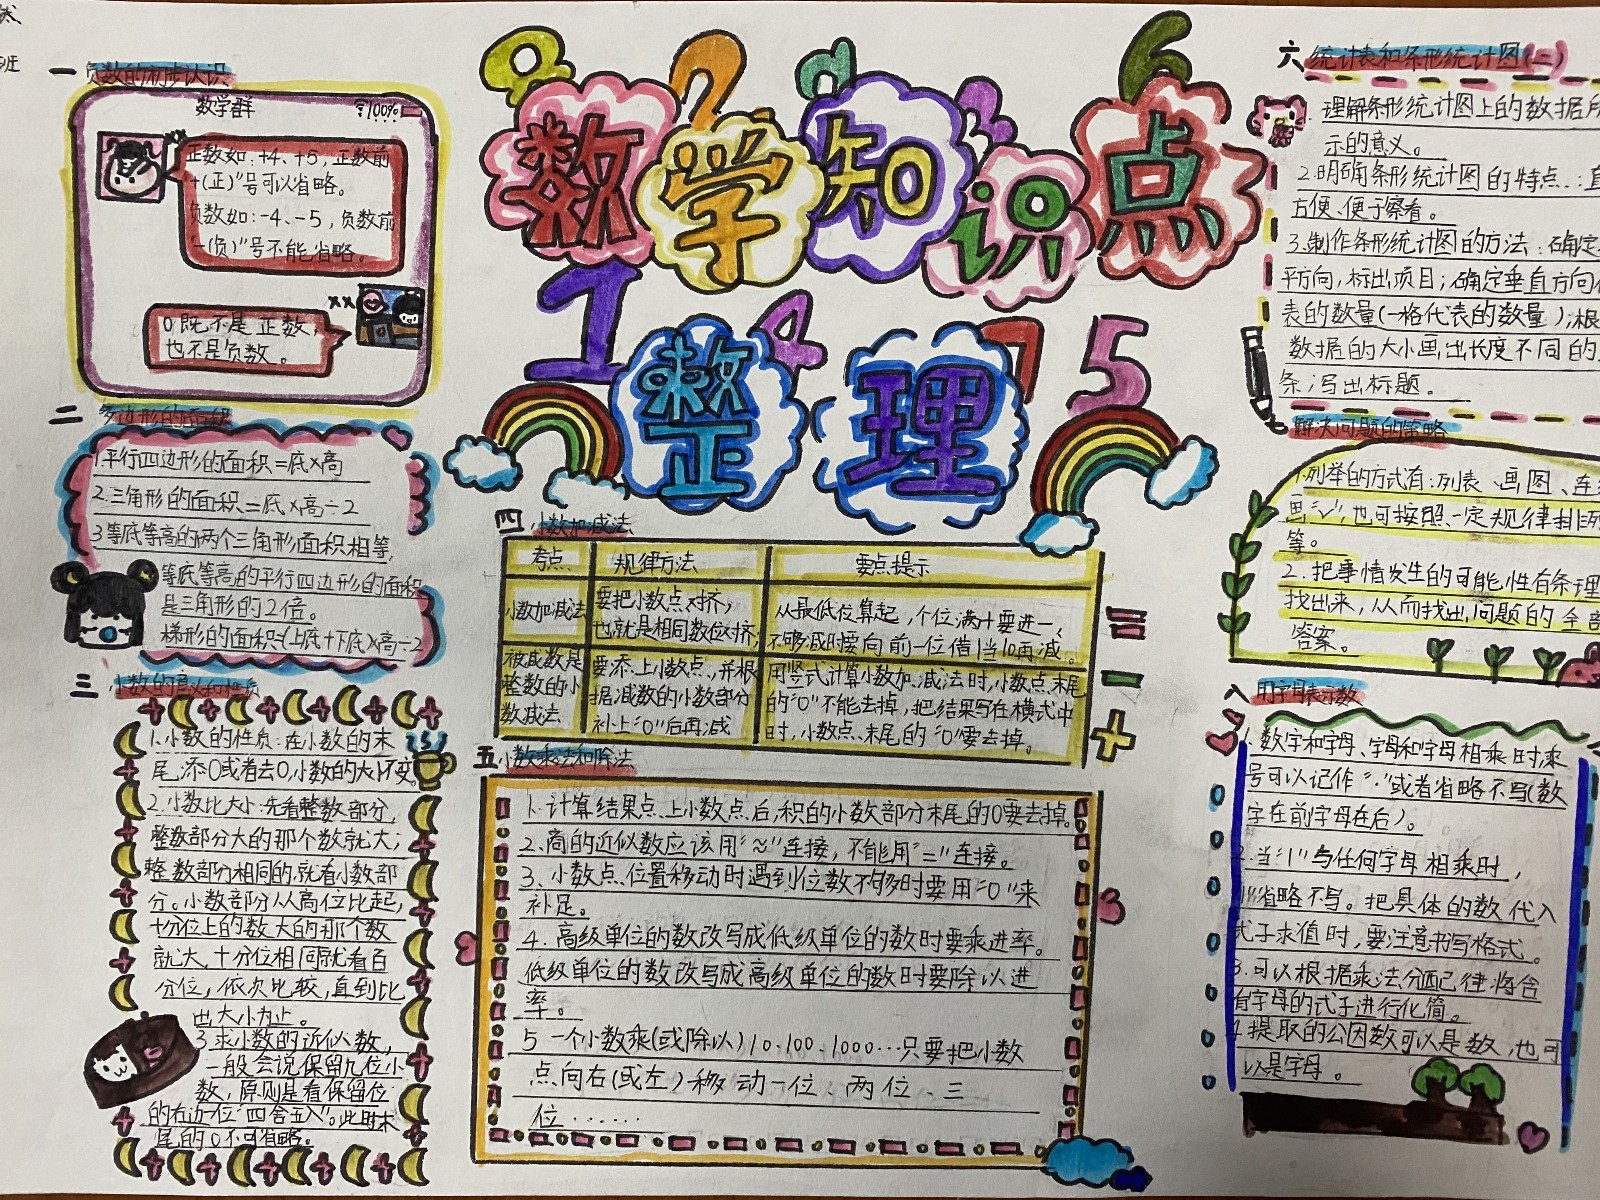 班
数学知识点
整理
9
2
9
3
6
1
4
7
5
一 负数的初步认识
数学群
100%
正数如：+4、+5，正数前
"+(正)"号可以省略。
负数如：-4、-5，负数前
"-(负)"号不能省略。
xx
xx
0既不是正数，
也不是负数。
二 多边形的面积
1.平行四边形的面积=底×高
2.三角形的面积=底×高÷2
3等底等高的两个三角形面积相等，
等底等高的平行四边形的面积
是三角形的2倍。
梯形的面积=(上底+下底)×高÷2
三 小数的意义和性质
1.小数的性质：在小数的末
尾添0或者去0，小数的大小不变。
2.小数比大小：先看整数部分，
整数部分大的那个数就大；
整数部分相同的，就看小数部
分。小数部分从高位比起，
十分位上的数大的那个数
就大，十分位相同就看百
分位，依次比较，直到比
出大小为止。
3求小数的近似数，
一般会说保留几位小
数，原则是看保留位
的右边一位"四舍五入"。此时末
尾的0不可省略。
四 小数加减法
考点 规律方法 要点提示
小数加减法
要把小数点对齐，
也就是相同数位对齐；
从最低位算起，个位满十要进一，
不够减时要向前一位借1当10再减。
被减数是
整数的小
数减法
要添上小数点，并根
据减数的小数部分
补上"0"后再减
用竖式计算小数加、减法时，小数点末尾
的"0"不能去掉，把结果写在横式中
时，小数点末尾的"0"要去掉。
=
-
+
五 小数乘法和除法
1.计算结果点上小数点后，积的小数部分末尾的0要去掉。
2.商的近似数应该用"≈"连接，不能用"="连接。
3.小数点位置移动时遇到位数不够时要用"0"来
补足。
4.高级单位的数改写成低级单位的数时要乘进率。
低级单位的数改写成高级单位的数时要除以进
率。
5 一个小数乘(或除以)10、100、1000…只要把小数
点向右(或左)移动一位、两位、三
位……
六 统计表和条形统计图(二)
理解条形统计图上的数据所
示的意义。
2.明确条形统计图的特点：直
方便、便于察看。
3.制作条形统计图的方法：确定
平方向，标出项目；确定垂直方向
表的数量(一格代表的数量)；根
数据的大小画出长度不同的
条；写出标题。
解决问题的策略
1.列举的方式有：列表、画图、连
画"√"，也可按照一定规律排列
等。
2.把事情发生的可能性有条理
找出来，从而找出问题的全部
答案。
八 用字母表示数
1.数字和字母、字母和字母相乘时，乘
号可以记作"·"或者省略不写(数
字在前字母在后)。
2.当"1"与任何字母相乘时，
"1"省略不写。把具体的数代入
式子求值时，要注意书写格式。
3.可以根据乘法分配律将含
有字母的式子进行化简。
4.提取的公因数可以是数，也可
以是字母。